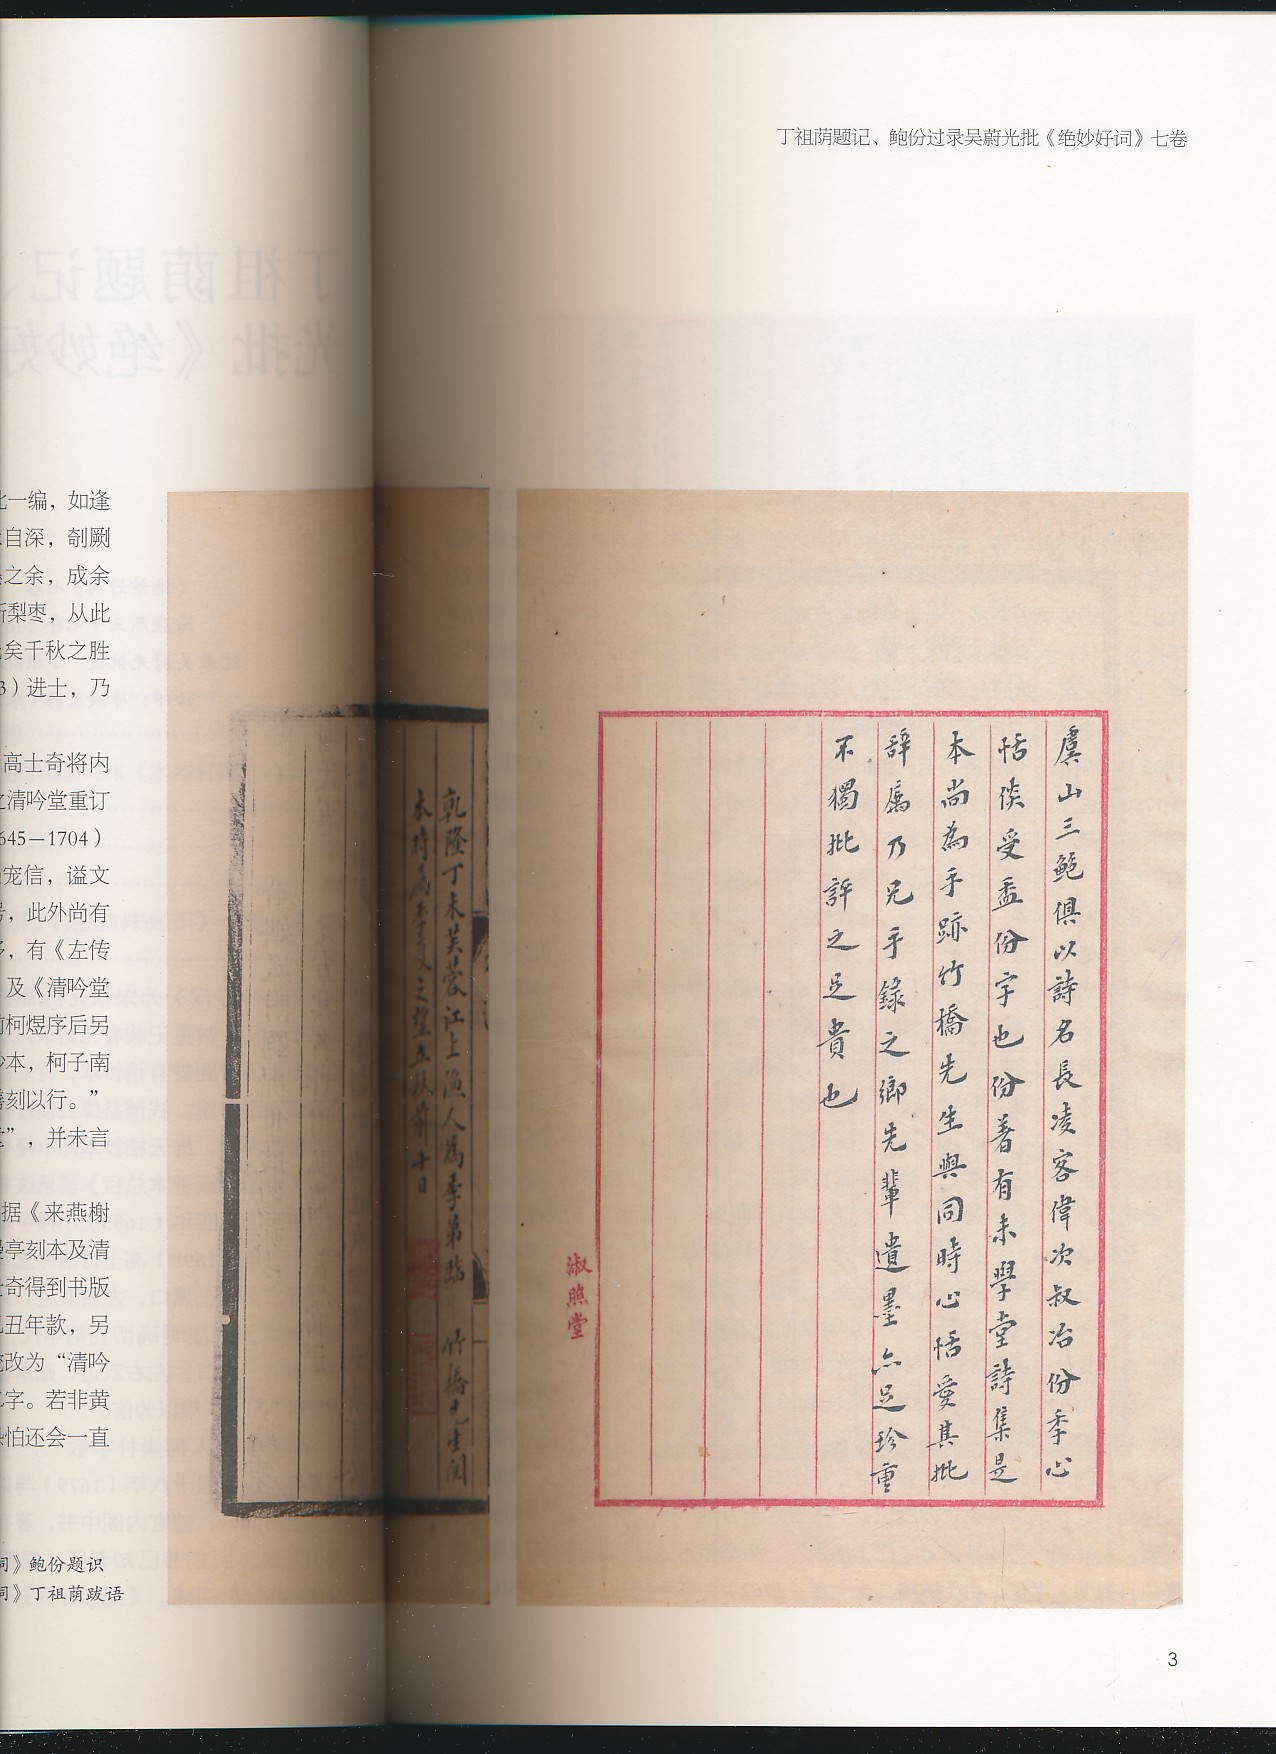 丁祖荫题记、鲍份过录吴蔚光批《绝妙好词》七卷
一编，如逢
自深，剞劂
之余，成余
梨枣，从此
矣千秋之胜
3）进士，乃
高士奇将内
清吟堂重订
645—1704）
宠信，谥文
号，此外尚有
多，有《左传
及《清吟堂
柯煜序后另
抄本，柯子南
刻以行。”
”，并未言
据《来燕榭
亭刻本及清
奇得到书版
丑年款，另
改为“清吟
字。若非黄
恐怕还会一直
词》鲍份题识
词》丁祖荫跋语
乾隆丁未芙蓉江上渔人為季弟臨 竹橋先生閱
本時
之望
前十日
虞山三鮑俱以詩名長凌客偉次叔冶份季心
恬倓受盉份字也份著有未學堂詩集是
本尚為手跡竹橋先生與同時心恬愛其批
辭属乃兄手錄之鄉先輩遺墨亦足珍重
不獨批評之足貴也
淑照堂
3